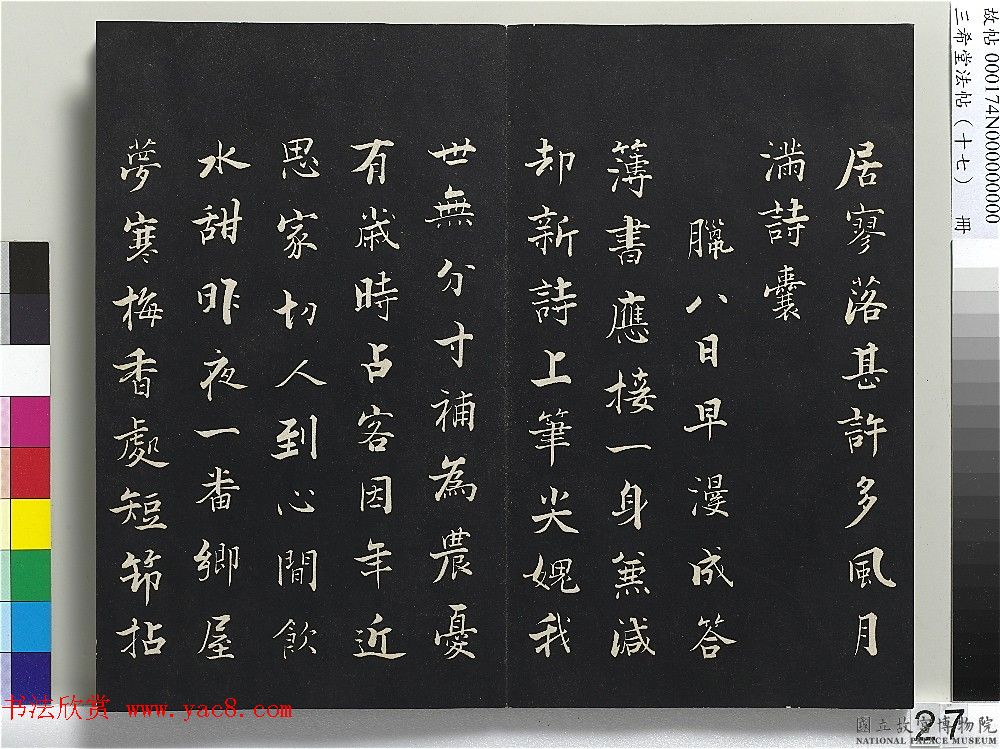 居寥落甚許多風月
滿詩囊
臘八日早漫成答
簿書應接一身兼減
却新詩上筆尖媿我
世無分寸補為農憂
有歲時占客因年近
思家切人到心間飲
水甜昨夜一番鄉屋
夢寒梅香處短笻拈
故帖000174N000000000
三希堂法帖(十七) 冊
书法欣赏 www.yac8.com
27
國立故宮博物院
NATIONAL PALACE MUSEUM